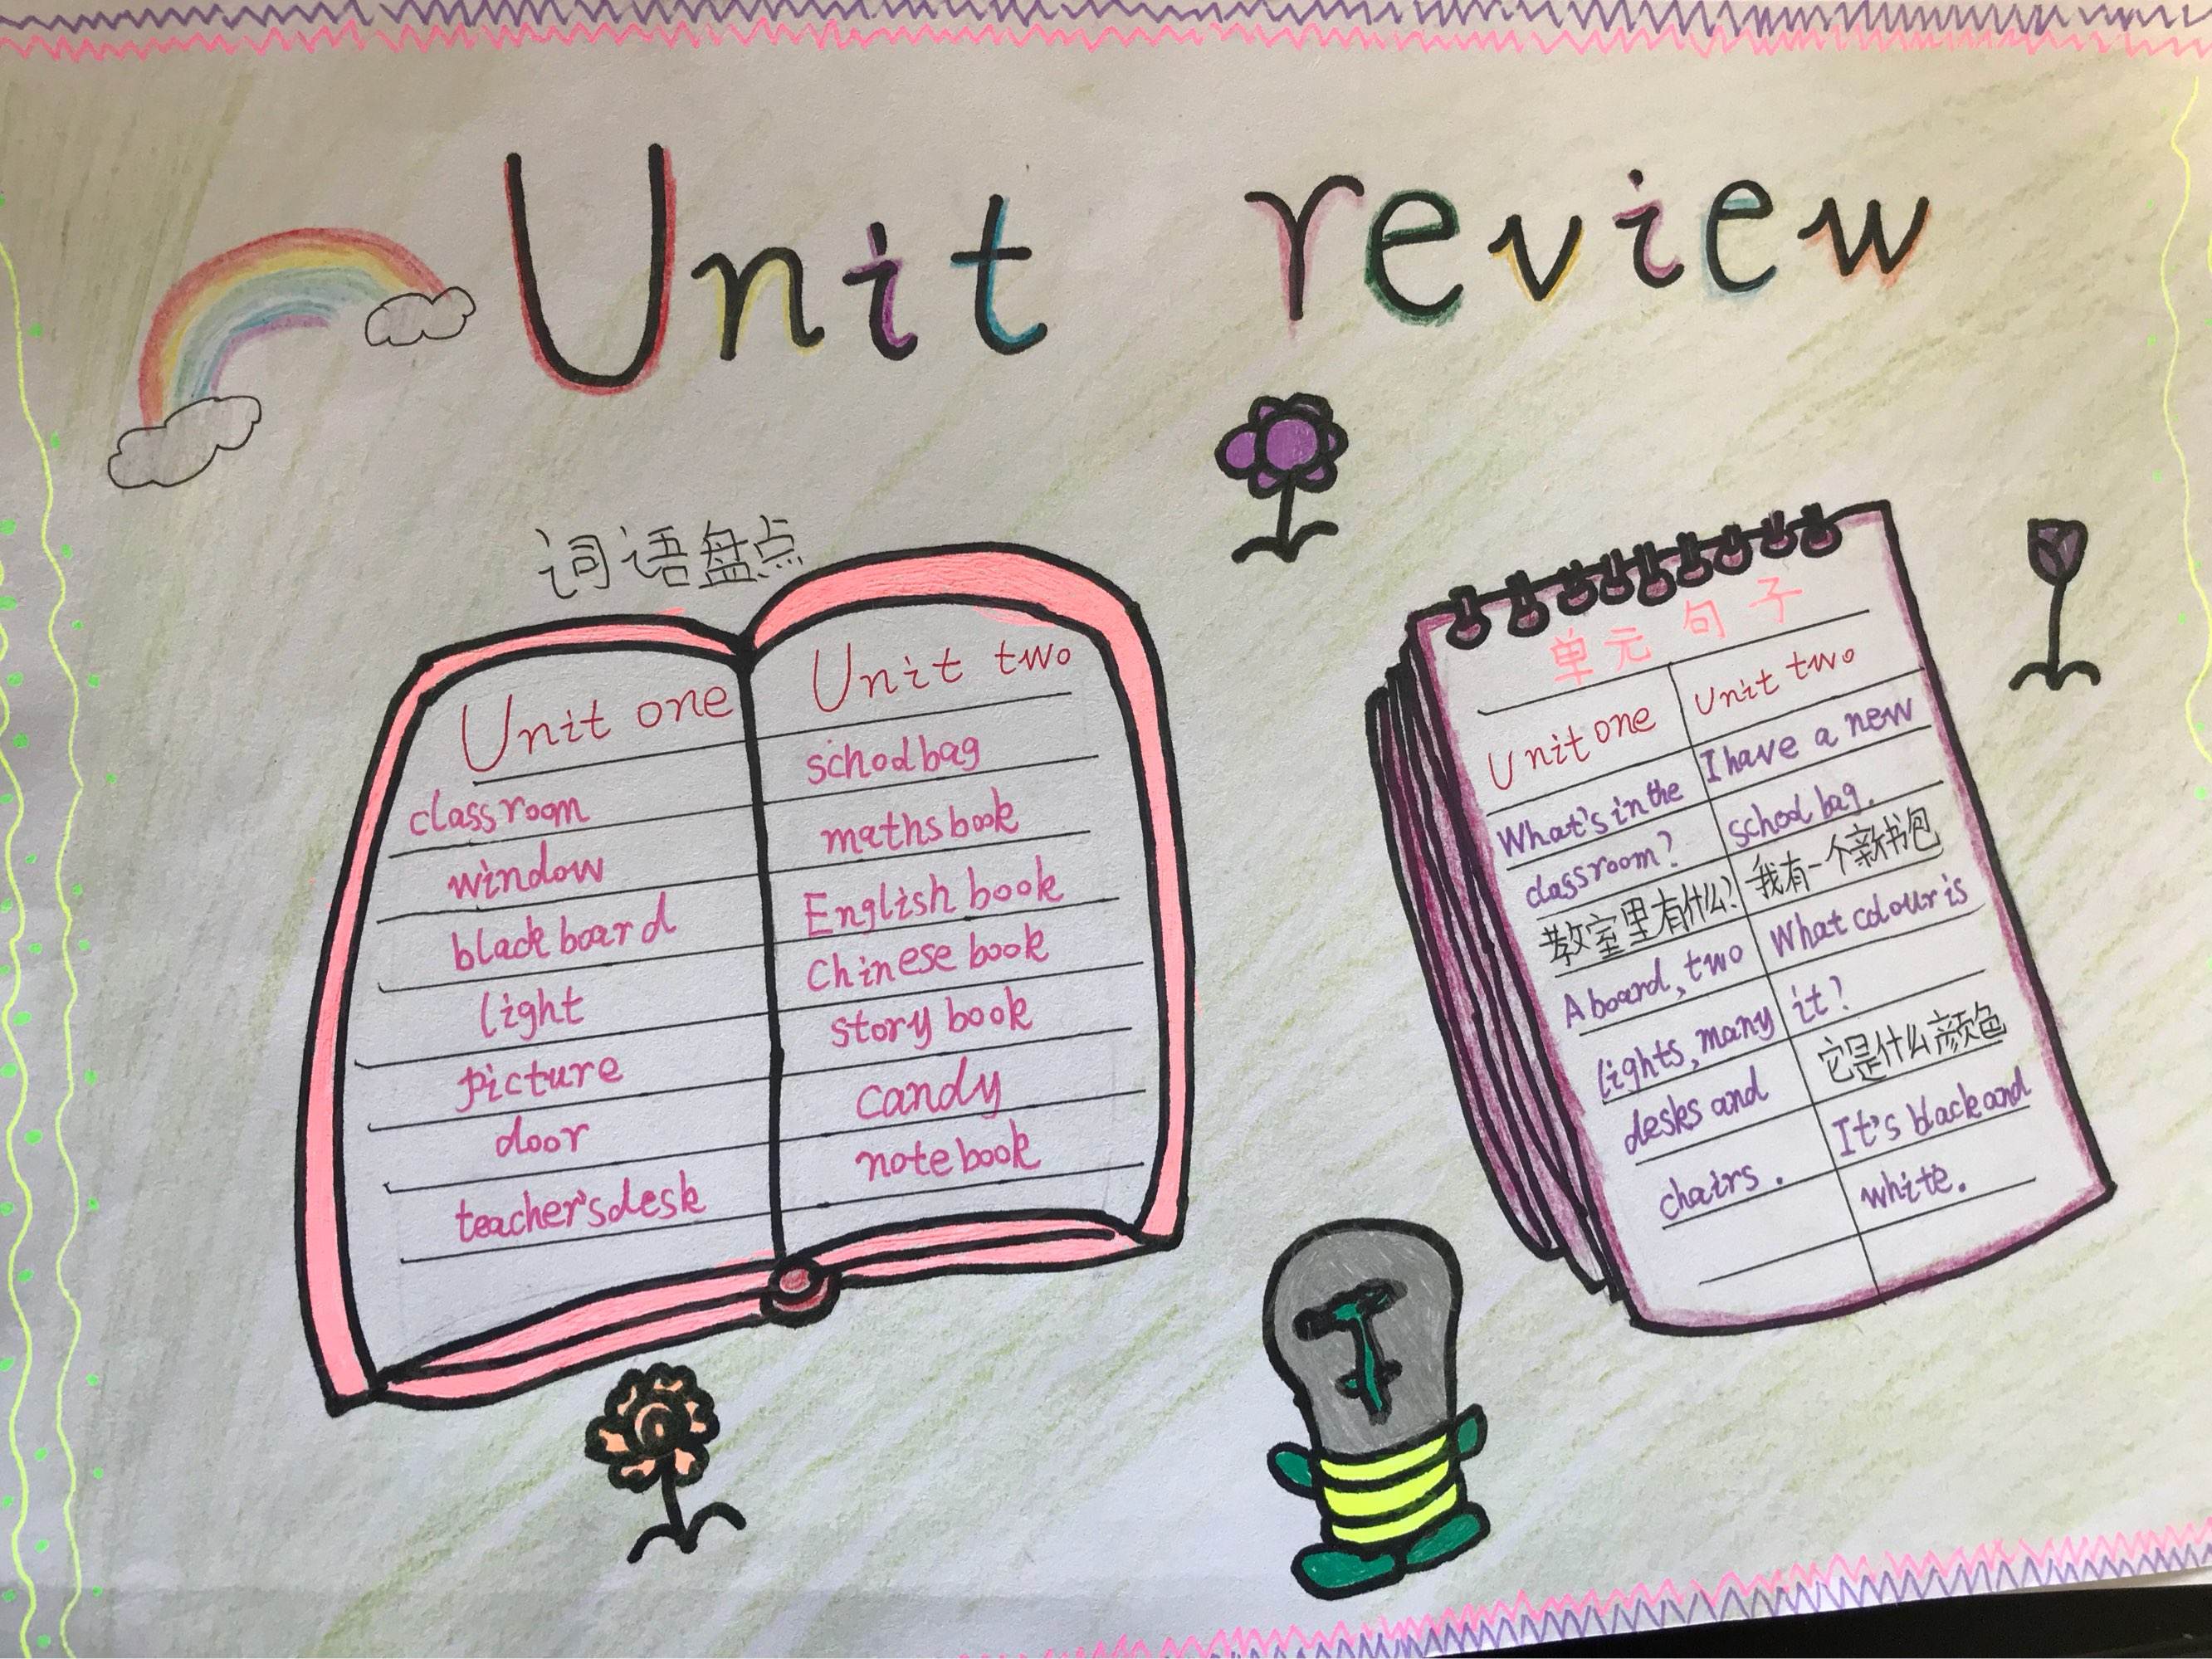 Unit review
词语盘点
Unit one
classroom
window
blackboard
light
picture
door
teacher's desk
Unit two
schoolbag
maths book
English book
Chinese book
story book
candy
notebook
单元句子
Unit one
What's in the
classroom?
教室里有什么?
A board, two
lights, many
desks and
chairs.
Unit two
I have a new
school bag.
我有一个新书包
What colour is
it?
它是什么颜色
It's black and
white.